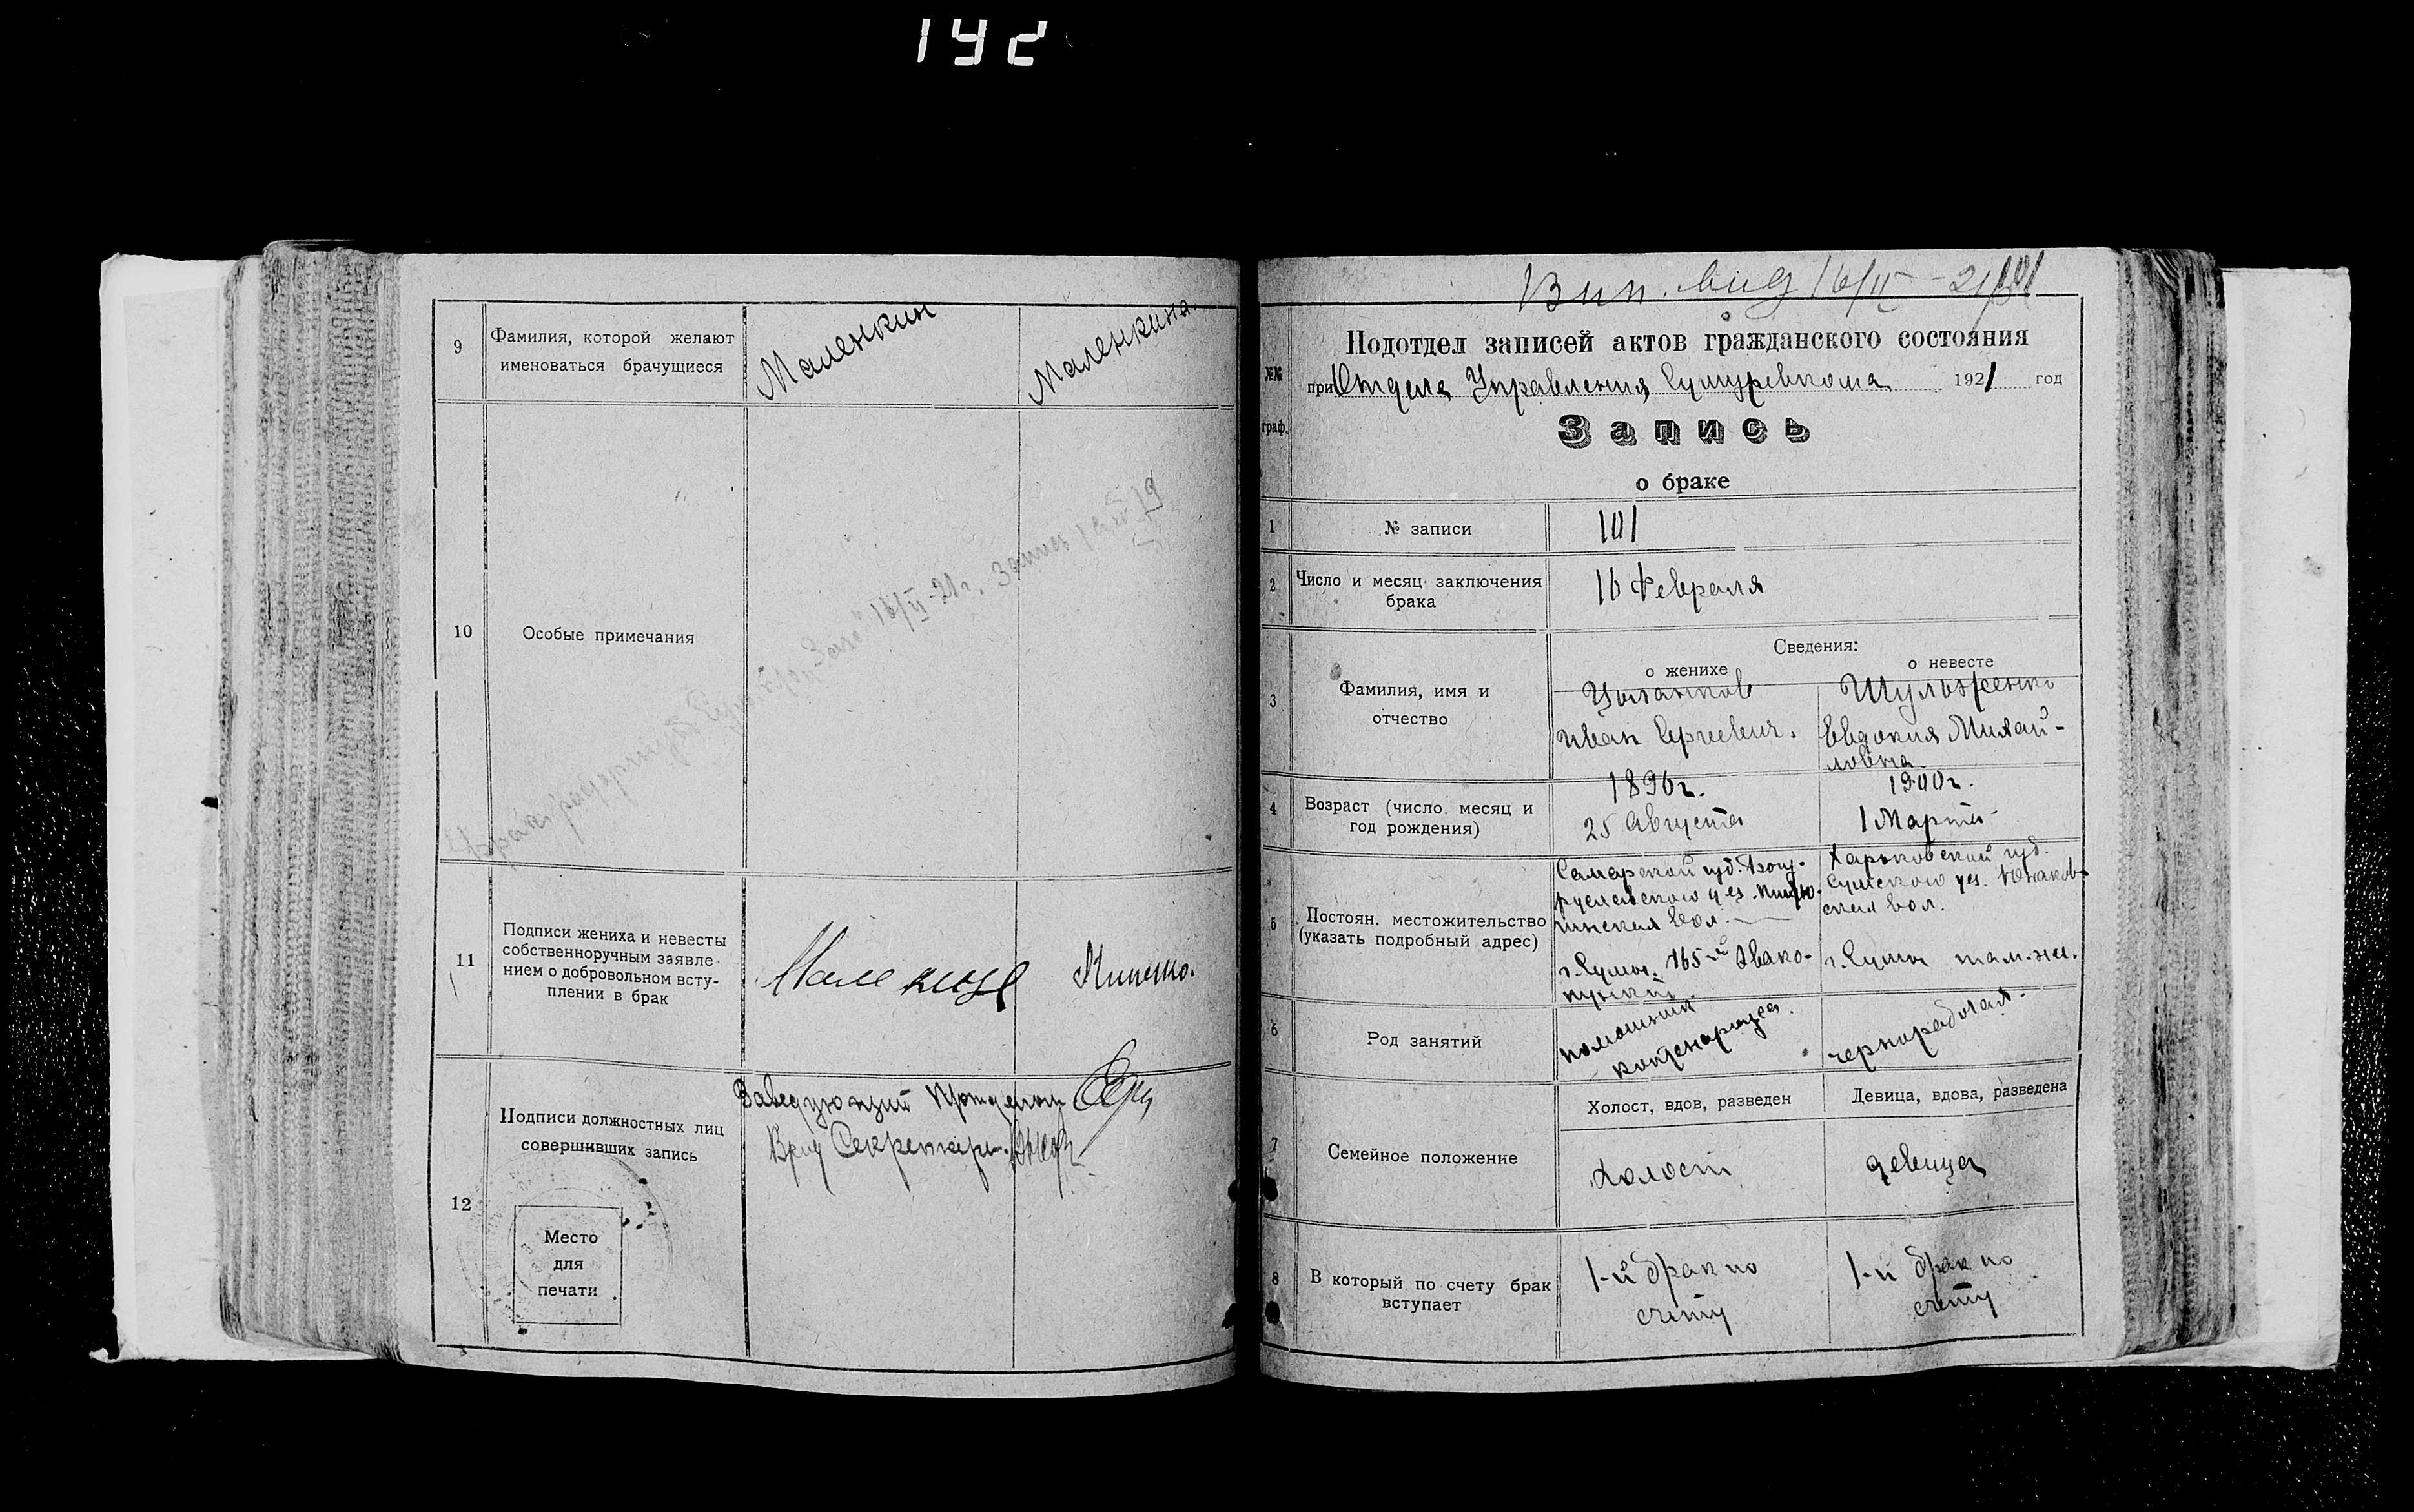 192
9
Фамилия, которой желают
именоваться брачущиеся
Маленкин
Маленкина.
10
Особые примечания
16/II-21г.
11
Подписи жениха и невесты
собственноручным заявле-
нием о добровольном всту-
плении в брак
12
Подписи должностных лиц
совершивших запись
Заведующий
Врид Секретарь
Место
для
печати
Вип. вид 16/II-21
Подотдел записей актов гражданского состояния
№№
граф.
при Отдела Управления Сумуревкома 1921 год
Запись
о браке
1
№ записи
101
2
Число и месяц заключения
брака
16 Февраля
Сведения:
о женихе
о невесте
3
Фамилия, имя и
отчество
Цыганков
Иван Сергеевич.
Шульженко
Евдокия Михай-
ловна.
4
Возраст (число, месяц и
год рождения)
1896г.
25 Августа
1900г.
1 Марта
5
Постоян. местожительство
(указать подробный адрес)
Самарской губ. Богу-
русланского уез.
вол.
г. Сумы. 165-й Эвако-
пункт.
Харьковской губ.
Сумского уез. Юнаков-
ская вол.
г. Сумы там-же.
6
Род занятий
помощник
каптенармуса.
чернорабочая.
7
Семейное положение
Холост, вдов, разведен
Девица, вдова, разведена
холост
девица
8
В который по счету брак
вступает
1-й брак по
счету
1-й брак по
счету